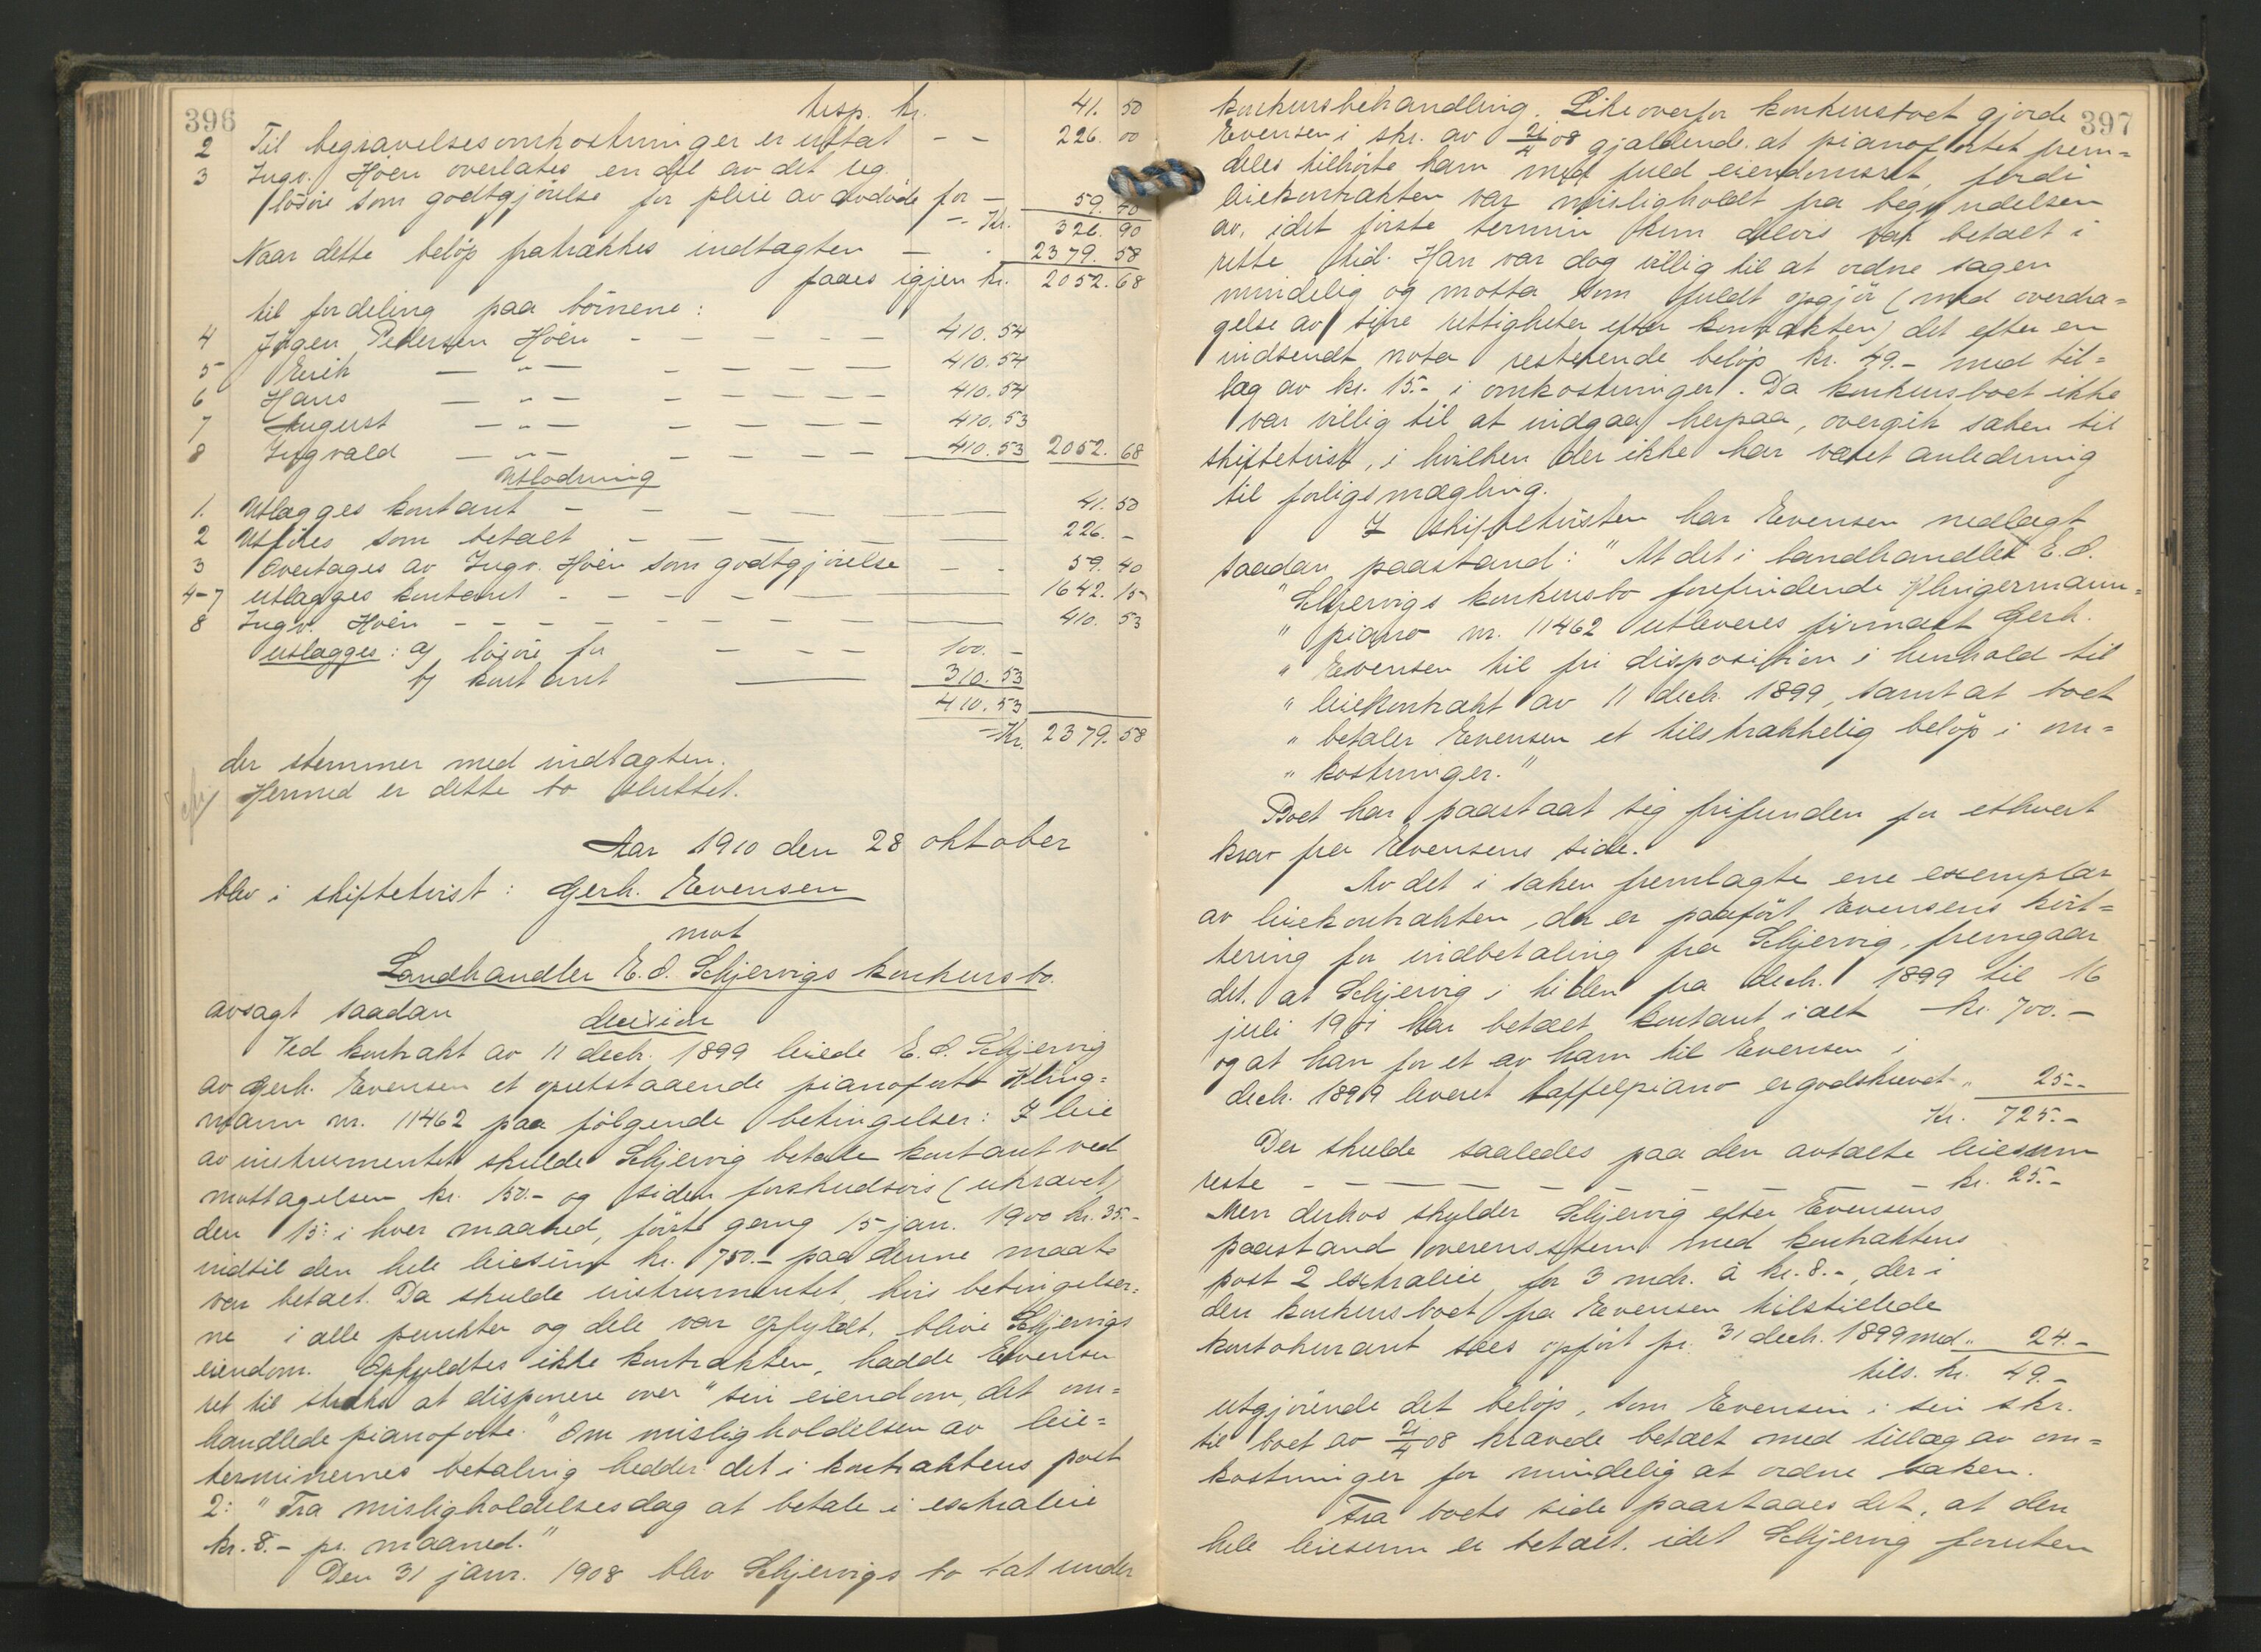 396
trsp. kr. 41. 50
2 Til begravelsesomkostninger er uttat - - 226. 00
3 Ingv. Höen overlates en del av det reg.
lösöre som godtgjörelse for pleie av avdöde for - 59. 40
- Kr. 326. 90
Naar dette belöp fratrækkes indtægten - - 2379. 58
faaes igjen kr. 2052. 68
til fordeling paa börnene:
4 Jörgen Pedersen Höen - - - - - 410.54
5 Erik - „ - - - - - 410.54
6 Hans - „ - - - - - 410.54
7 August - „ - - - - - 410.53
8 Ingvald - „ - - - - - 410.53 2052. 68
Utlodning
1. Utlægges kontant - - - - 41. 50
2 Utföres som betalt - - - - 226. -
3 Overtages av Ingv. Höen som godtgjörelse - - 59. 40
4-7 utlægges kontant - - - - 1642. 15
8 Ingv. Höen - - - - - - 410. 53
utlægges: a) lösöre for - - - 100. -
b) kontant - 310. 53
410. 53
Kr. 2379. 58
der stemmer med indtægten.
Hermed er dette bo sluttet.
Aar 1910 den 28 oktober
blev i skiftetvist: Gerh. Evensen
mot
Landhandler E. O. Schjervigs konkursbo.
avsagt saadan decision
Ved kontrakt av 11 decbr. 1899 leiede E. O. Schjervig
av Gerh. Evensen et opretstaaende pianoforte Kling=
mann nr. 11462 paa følgende betingelser: I leie
av instrumentet skulde Schjervig betale kontant ved
mottagelsen kr. 150.- og siden forskudsvis (ukrævet)
den 15: i hver maaned, förste gang 15 jan. 1900 kr. 35.-
indtil den hele leiesum kr. 750.- paa denne maate
var betalt. Da skulde instrumentet, hvis betingelser=
ne i alle punkter og dele var opfyldt, blive Schjervigs
eiendom. Opfyldtes ikke kontrakten, hadde Evensen
ret til straks at disponere over "sin eiendom, det om=
handlede pianoforte." Om misligholdelsen av leie=
terminernes betaling hedder det i kontraktens post
2: "Fra misligholdelsesdag at betale i extraleie
kr. 8.- pr. maaned."
Den 31 janr. 1908 blev Schjervigs bo tat under
397
konkursbehandling. Likeoverfor konkursboet gjorde
Evensen i skr. av 21/4 08 gjældende, at pianofortet frem=
deles tilhörte ham med fuld eiendomsret, fordi
leiekontrakten var misligholdt fra begyndelsen
av, idet förste termin kun delvis var betalt i
rette tid. Han var dog villig til at ordne sagen
mindelig og motta som fuldt opgjör (med overdra=
gelse av sine rettigheter efter kontrakten) det efter en
indsendt nota resterende belöp kr. 49.- med til=
læg av kr. 15.- i omkostninger. Da konkursboet ikke
var villig til at indgaa herpaa, overgik saken til
skiftetvist, i hvilken der ikke har været anledning
til forligsmægling.
I skiftetvisten har Evensen nedlagt
saadan paastand: "At det i landhandler E. O.
"Schjervigs konkursbo forefindende Klingermann=
" piano nr. 11462 utleveres firmaet Gerh.
" Evensen til fri disposition i henhold til
" leiekontrakt av 11 decbr. 1899, samt at boet
" betaler Evensen et tilstrækkelig belöp i om=
" kostninger."
Boet har paastaat sig frifunden for ethvert
krav fra Evensens side.
Av det i saken fremlagte ene exemplar
av leiekontrakten, der er paaført Evensens kvit=
tering for indbetaling fra Schjervig, fremgaar
det, at Schjervig i tiden fra decbr. 1899 til 16
juli 1901 har betalt kontant ialt - kr. 700.-
og at han for et av ham til Evensen i
decbr. 1899 leveret taffelpiano er godskrevet " 25.-
Kr. 725.-
Der skulde saaledes paa den avtalte leiesum
reste - - - - - - - - kr. 25.-
Men derhos skylder Schjervig efter Evensens
paastand overensstem. med kontraktens
post 2 extraleie for 3 mdr. à kr. 8.-, der i
den konkursboet fra Evensen tilstillede
kontokurant sees opfört pr. 31 decbr. 1899 med " 24.-
tils. kr. 49.-
utgjörende det belöp, som Evensen i sin skr.
til boet av 21/4 08 krævede betalt med tillæg av om=
kostninger for mindelig at ordne saken.
Fra boets side paastaaes det, at den
hele leiesum er betalt, idet Schjervig foruten